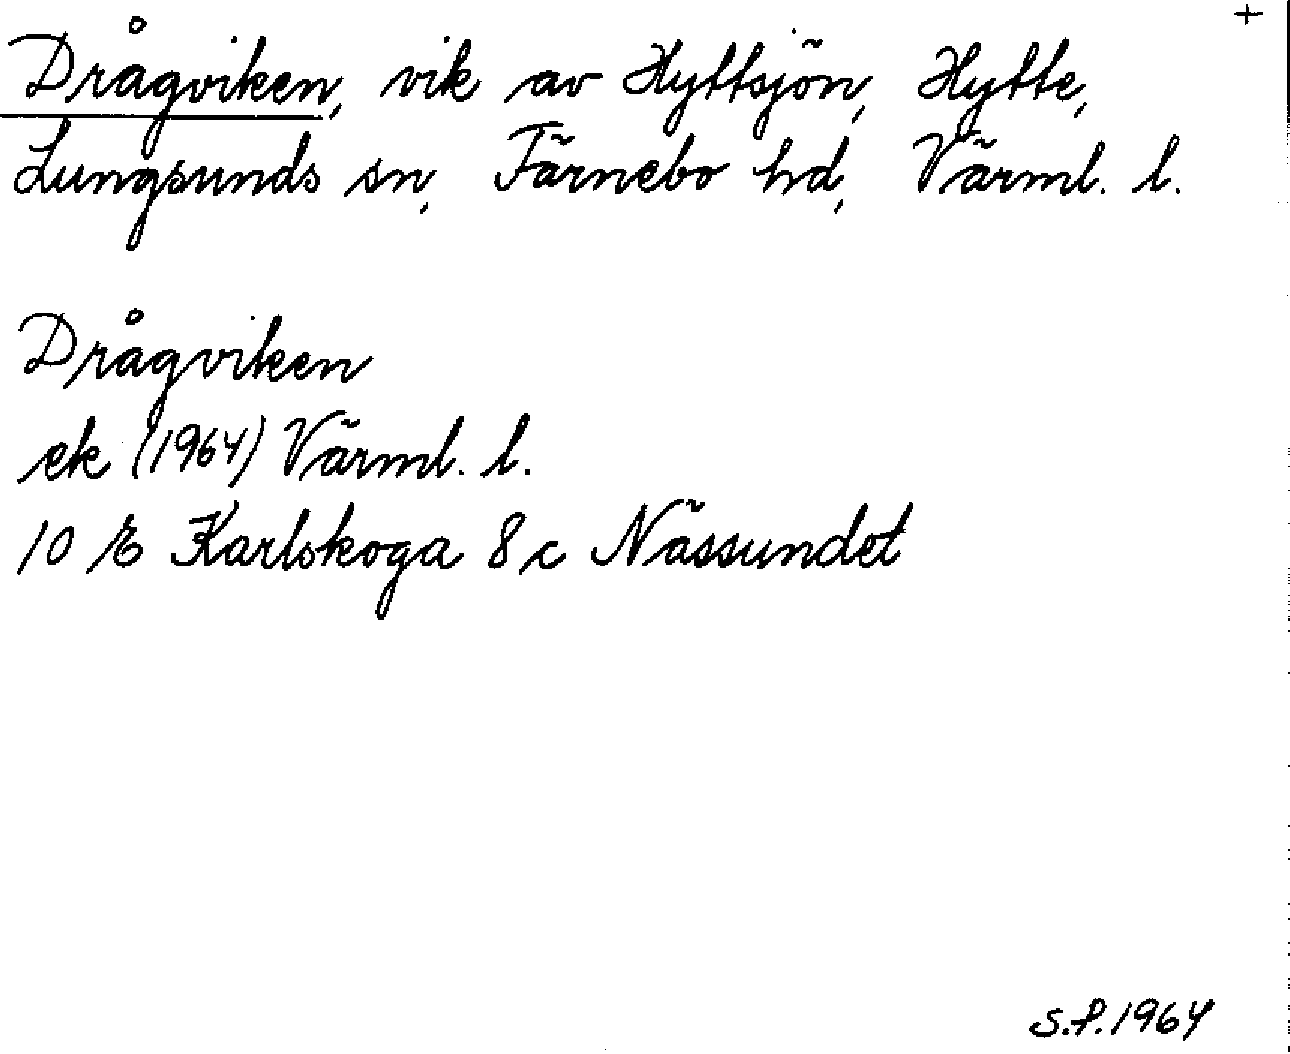 +
Drågviken, vik av Hyttsjön, Hytte,
Lungsunds sn, Färnebo hd, Värml. l.
Drågviken
ek (1964) Värml. l.
10 E Karlskoga 8 c Nässundet
S.P. 1964